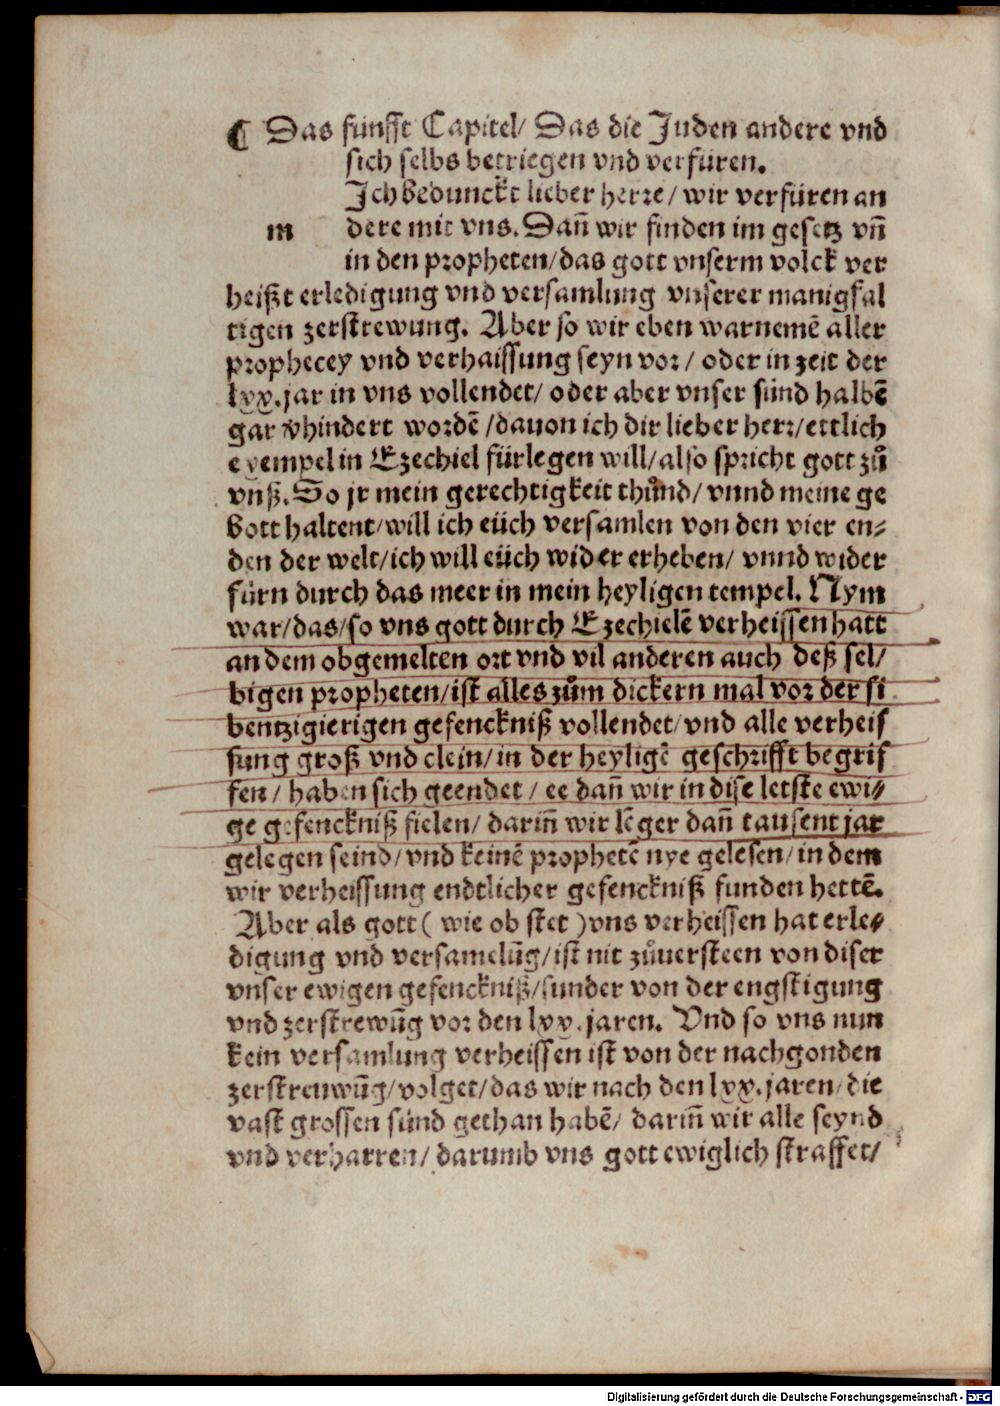 ¶ Das fünfft Capitel/ Das die Juden andere vnd
sich selbs betriegen vnd verfüren.
Ich bedunckt lieber herre/ wir verfüren an
m dere mit vns. Dañ wir finden im gesetz vñ
in den propheten/das gott vnserm volck ver
heißt erledigung vnd versamlung vnserer manigfal
tigen zerstrewung. Aber so wir eben warnemē aller
prophecey vnd verhaissung seyn vor/ oder in zeit der
lxx.jar in vns vollendet/ oder aber vnser sünd halbē
gar v̄hindert wordē /dauon ich dir lieber herr/ettlich
exempel in Ezechiel fürlegen will/also spricht gott zů
vnß. So jr mein gerechtigkeit thůnd/ vnnd meine ge
bott haltent/will ich eüch versamlen von den vier en⸗
den der welt/ich will eüch wider erheben/ vnnd wider
fürn durch das meer in mein heyligen tempel. Nym
war/das/so vns gott durch Ezechielē verheissen hatt
an dem obgemelten ort vnd vil anderen auch deß sel/
bigen propheten/ist alles zům dickern mal vor der si
bentzigierigen gefenckniß vollendet/vnd alle verheis
sung groß vnd clein/in der heyligē geschrifft begrif
fen/ haben sich geendet/ ee dañ wir in dise letste ewi⸗
ge gefenckniß fielen/ dariñ wir lēger dañ tausent jar
gelegen seind/vnd keinē prophetē nye gelesen/in dem
wir verheissung endtlicher gefenckniß funden hettē.
Aber als gott ( wie ob stet )vns verheissen hat erle⸗
digung vnd versamelūg/ist nit zůuersteen von diser
vnser ewigen gefenckniß/sunder von der engstigung
vnd zerstrewūg vor den lxx.jaren. Vnd so vns nun
kein versamlung verheissen ist von der nachgonden
zerstreuwūg/volget/das wir nach den lxx.jaren/die
vast grossen sünd gethan habē/ dariñ wir alle seynd
vnd verharren/ darumb vns gott ewiglich straffet/
Digitalisierung gefördert durch die Deutsche Forschungsgemeinschaft - DFG